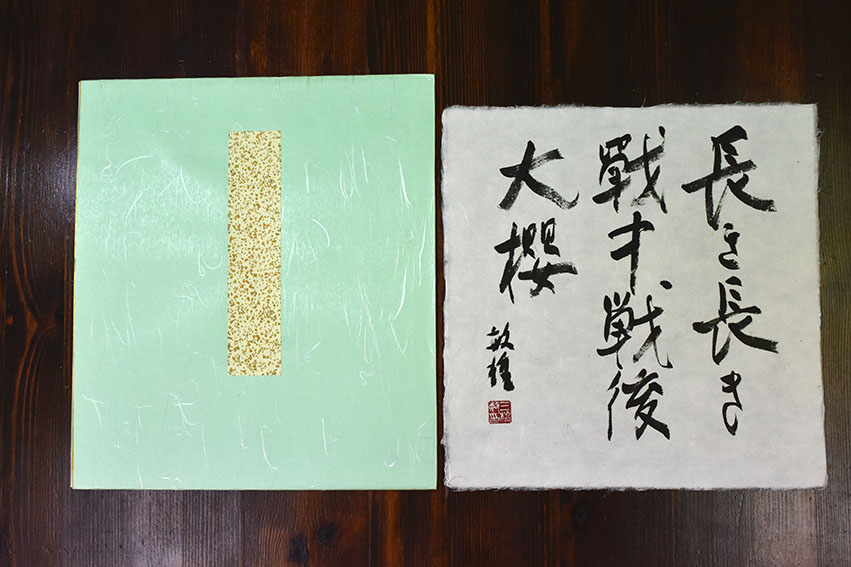 長き長き
戰中戦後
大櫻
敏雄